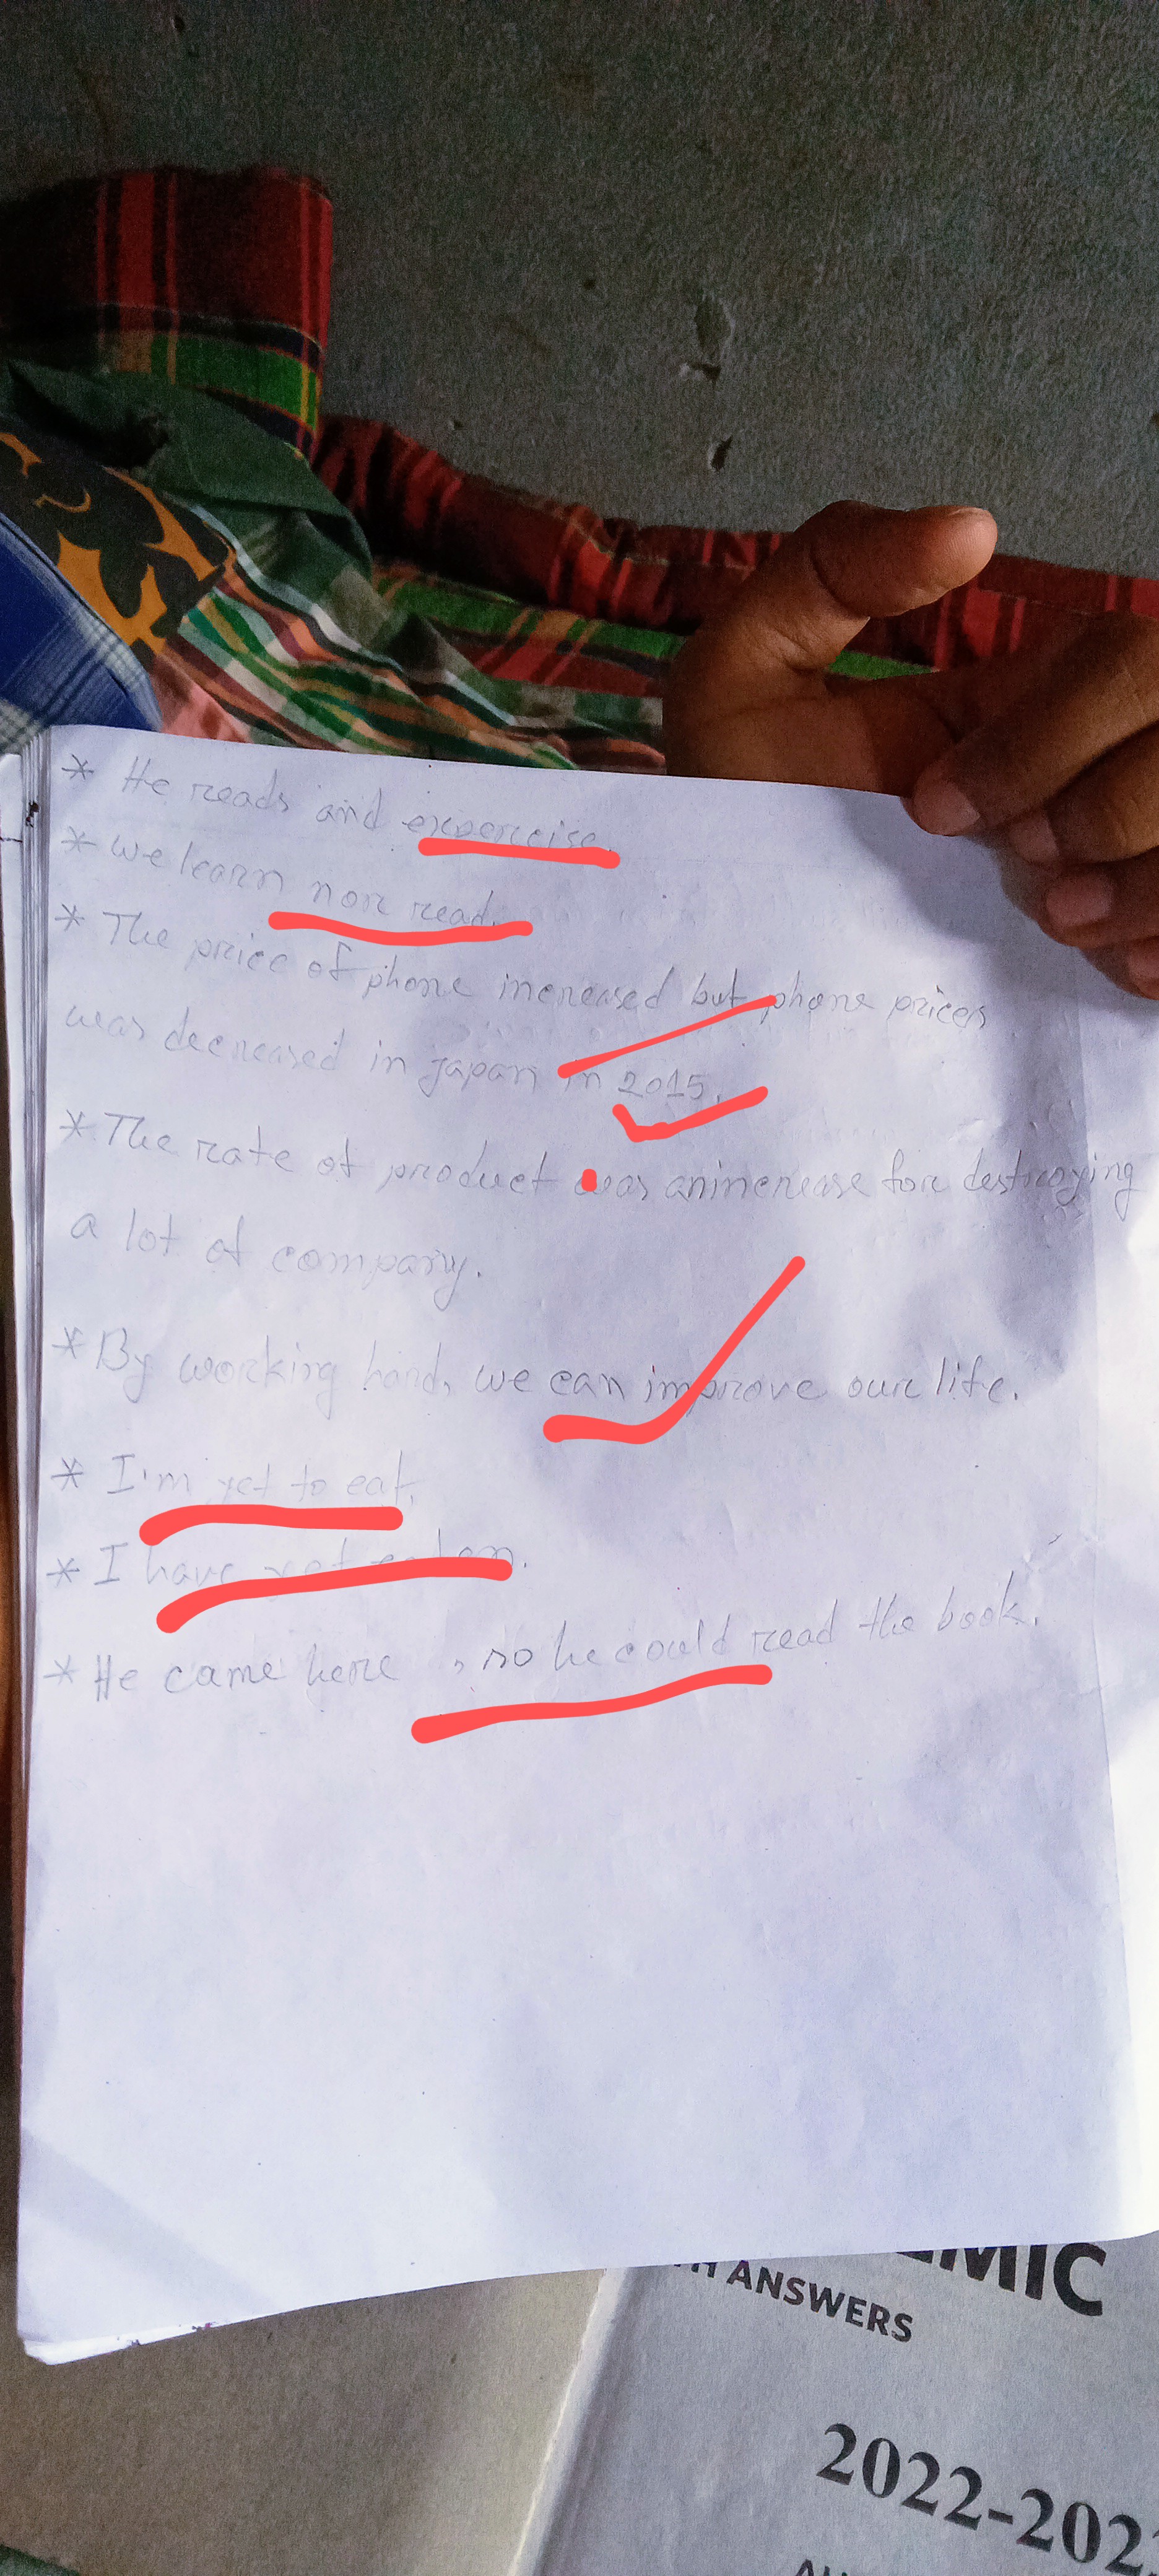 * He reads and exoercise.
* we learn nor read.
* The price of phone increased but phone prices
was decreased in japan in 2015.
* The rate of product was an increase for destroying
a lot of company.
* By working hard, we can improve our life.
* I'm yet to eat.
* I have yet eaten.
* He came here , so he could read the book.
EMIC
TH ANSWERS
2022-202